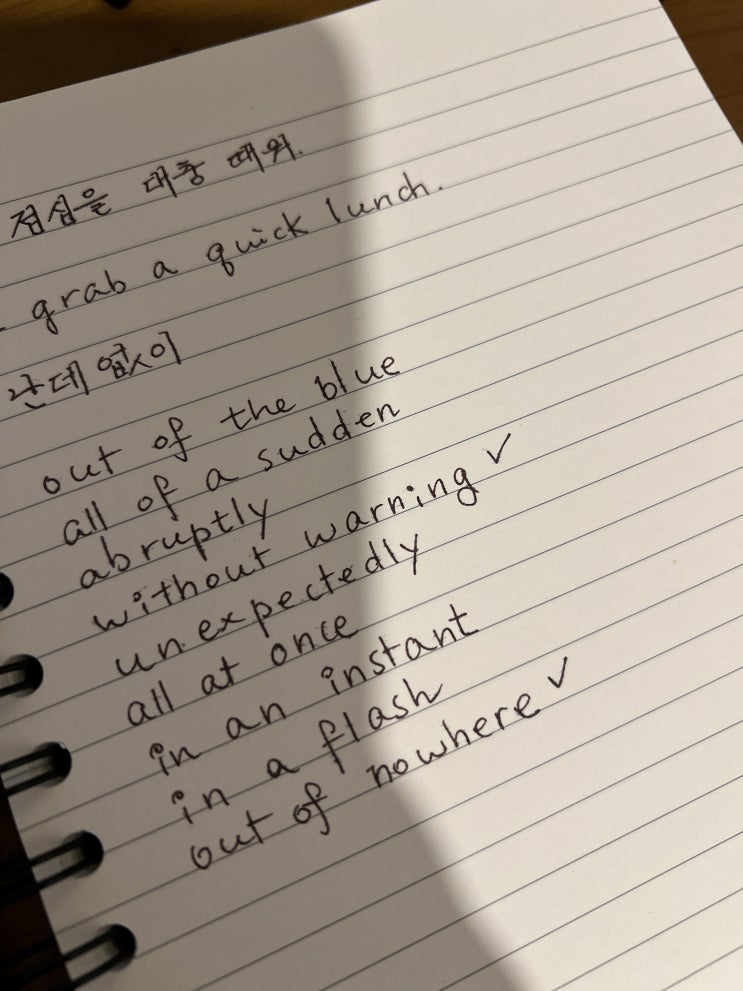 점심을 대충 때워.
- grab a quick lunch.
난데없이
out of the blue
all of a sudden
abruptly
without warning ✓
unexpectedly
all at once
in an instant
in a flash
out of nowhere ✓